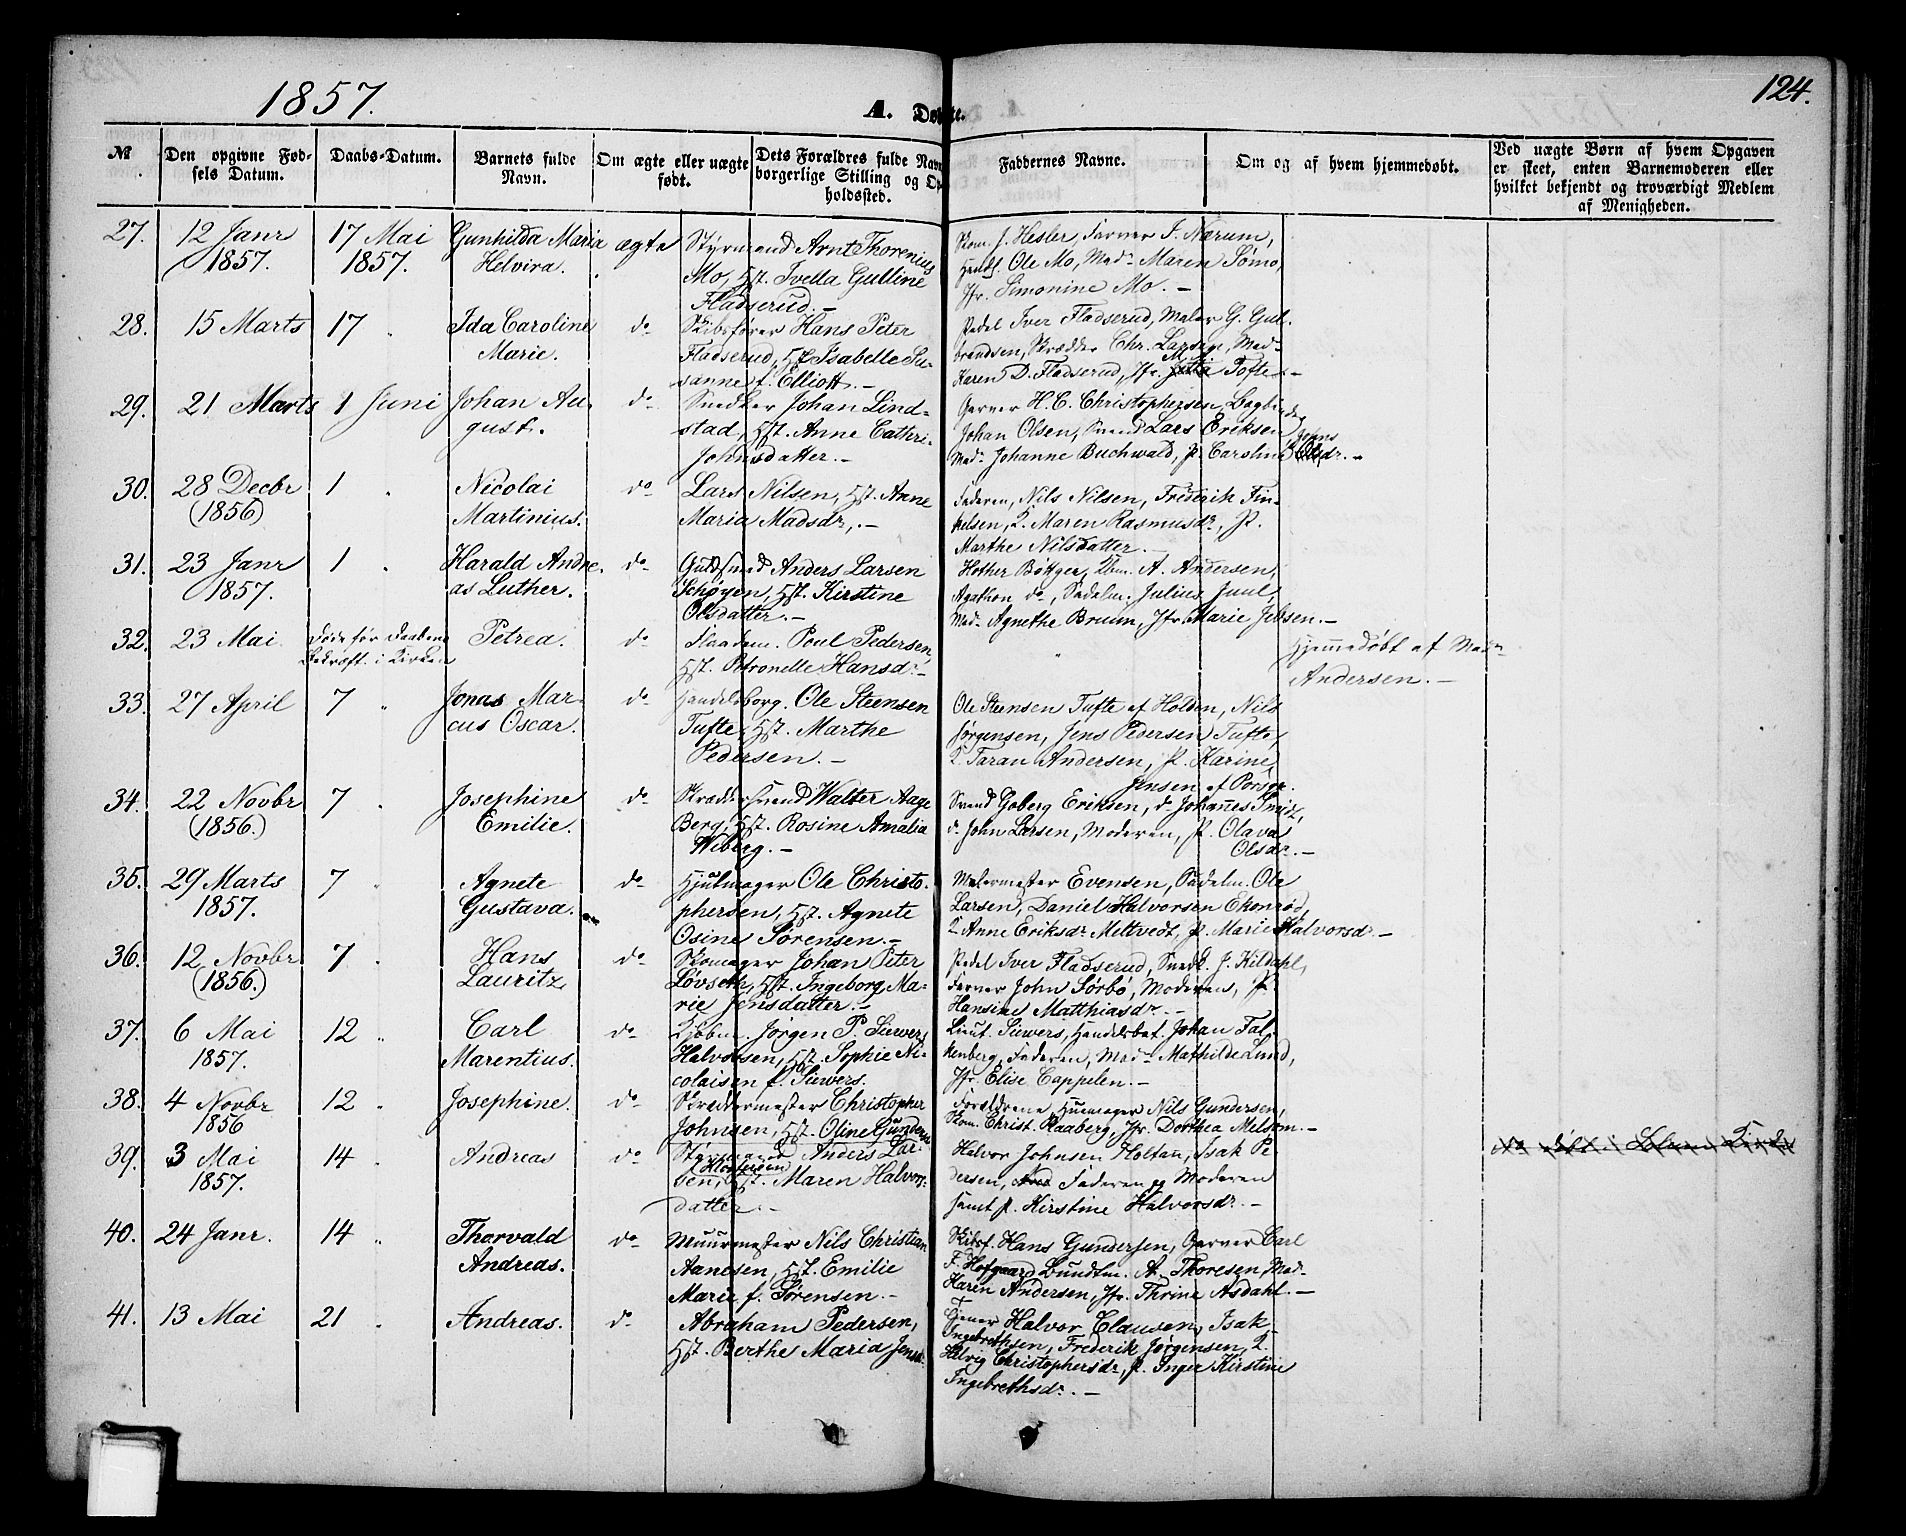 1857.
A. Døbte.
124.
№
Den opgivne Fød-
sels Datum.
Daabs-Datum.
Barnets fulde
Navn.
Om ægte eller uægte
født.
Dets Forældres fulde Navn
borgerlige Stilling og Op-
holdssted.
Faddernes Navne.
Om og af hvem hjemmedøbt.
Ved uægte Børn af hvem Opgaven
er skeet, enten Barnemoderen eller
hvilket bekjendt og troværdigt Medlem
af Menigheden.
27. 12 Janr 17 Mai Gunhilda Maria ægte Styrmand Arnt Thorenius
1857. 1857. Helvira. Mo, Hst. Ivella Gulline
Fladserud.-
Skom. J. Hesler, Farver F. Nærum,
Handl. Ole Mo, Madm Maren Sømo,
Jfr. Simonine Mo.-
28. 15 Marts 17 " Ida Caroline do Skibsfører Hans Peter
Marie. Fladserud, Hst Isabelle Su-
sanne f. Elliott.-
Pedel Iver Fladserud, Maler G. Gul-
brandsen, Skrædder Chr. Larsen, Mad-
Karen D. Fladserud, Jfr. Tofte.-
29. 21 Marts 1 Juni Johan Au- do Snedker Johan Lind-
gust. stad, Hst. Anne Cathri-
Johnsdatter.-
Garver H. C. Christophersen, Bogbinder
Johan Olsen, Svend Lars Eriksen,
Madm Johanne Buchwald, P. Caroline Johnsdr.-
30. 28 Decbr 1 " Nicolai do Lars Nilsen, Hst. Anne
(1856) Martinius. Maria Madsdr,.-
Faderen, Nils Nilsen, Frederik Fin-
kelsen, K. Maren Rasmusdr, P.
Marthe Nilsdatter.-
31. 23 Janr 1 " Harald Andre- do Guldsmed Anders Larsen
1857. as Luther. Schøyen, Hst. Kirstine
Olsdatter.-
Hother Bøttger, Kbm. A. Andersen,
Agathon do, Sadelm. Julius Juul,
Madm Agnethe Bruun, Jfr. Marie Jebsen.-
32. 23 Mai Døde før Daabens Petrea. do Flaadem. Poul Pedersen,
Bekræft. i Kirken Hst. Petronelle Hansdr.-
"
Hjemmedøbt af Madm
Andersen.-
33. 27 April 7 " Jonas Mar- do Handelsborg. Ole Steensen
cus Oscar. Tufte, Hst. Marthe
Pedersen.-
Ole Steensen Tufte af Holden, Nils
Jørgensen, Jens Pedersen Tufte,
K. Taran Andersen, P. Karine
Jensen af Porsgr.
34. 22 Novbr 7 " Josephine do Skræddersvend Walter Aage
(1856.) Emilie. Berg, Hst. Rosine Amalia
Wiberg.-
Svend Goberg Eriksen, do Johannes Smitz,
do John Larsen, Moderen, P. Olava
Olsdr.-
35. 29 Marts 7 " Agnete do Hjulmager Ole Christo-
1857. Gustava. phersen, Hst. Agnete
Osine Sørensen.-
Malermester Evensen, Sadelm. Ole
Larsen, Daniel Halvorsen Ekonrød,
K Anne Eriksdr Meltvedt, P. Marie Halvorsdr.-
36. 12 Novbr 7 " Hans do Skomager Johan Peter
(1856.) Lauritz, Løvseth, Hst. Ingeborg Ma-
rie Jensdatter.-
Pedel Iver Fladserud, Snedk. J. Kildahl,
Farver John Sørbø, Moderen, P.
Hansine Matthiasdr.-
37. 6 Mai 12 " Carl do Kjøbm. Jørgen P. Siewers
1857. Marentius. Halvorsen, Hst. Sophie Ni-
colaisen f. Siewers.
Lieut. Siewers, Handelsbet. Johan Fal-
kenberg, Faderen, Madm Mathilde Lund,
Jfr. Elise Cappelen.-
38. 4 Novbr 12 " Josephine. do Skræddermester Christopher
1856 Johnsen, Hst. Oline Gunders
Forældrene, Huemager Nils Gundersen,
Skom. Christ. Raaberg, Jfr. Dorthea Melsom.-
39. 3 Mai 14 " Andreas do Styrmand Anders Lar-
1857. sen, Hst. Maren Halvors-
datter.-
Halvor Johnsen Holtan, Isak Pe-
dersen, Faderen og Moderen
samt P. Kirstine Halvorsdr.-
40. 24 Janr. 14 " Thorvald do Muurmester Nils Christian
Andreas. Aanesen, Hst. Emilie
Marie f. Sørensen.-
Skibsf. Hans Gundersen, Garver Carl
F. Hofgaard, Bundtm. A. Thoresen, Mad-
Karen Andersen, Jfr. Thrine Asdahl.-
41. 13 Mai 21 " Andreas. do Abraham Pedersen,
Hst. Berthe Maria Jensd.
Tjener Halvor Clausen, Isak
Ingebrethsen, Frederik Jørgensen, K.
Helvig Christophersdr, P. Inger Kirstine
Ingebrethsdr.-